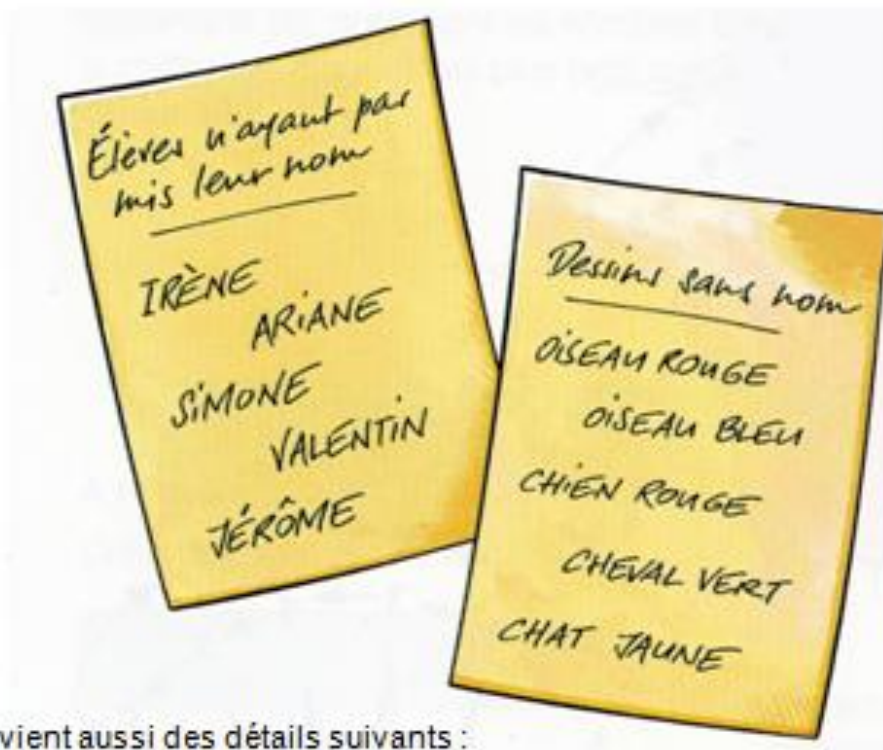 Élèves n'ayant pas
mis leur nom
IRÈNE
ARIANE
SIMONE
VALENTIN
JÉRÔME
Dessins sans nom
OISEAU ROUGE
OISEAU BLEU
CHIEN ROUGE
CHEVAL VERT
CHAT JAUNE
vient aussi des détails suivants :